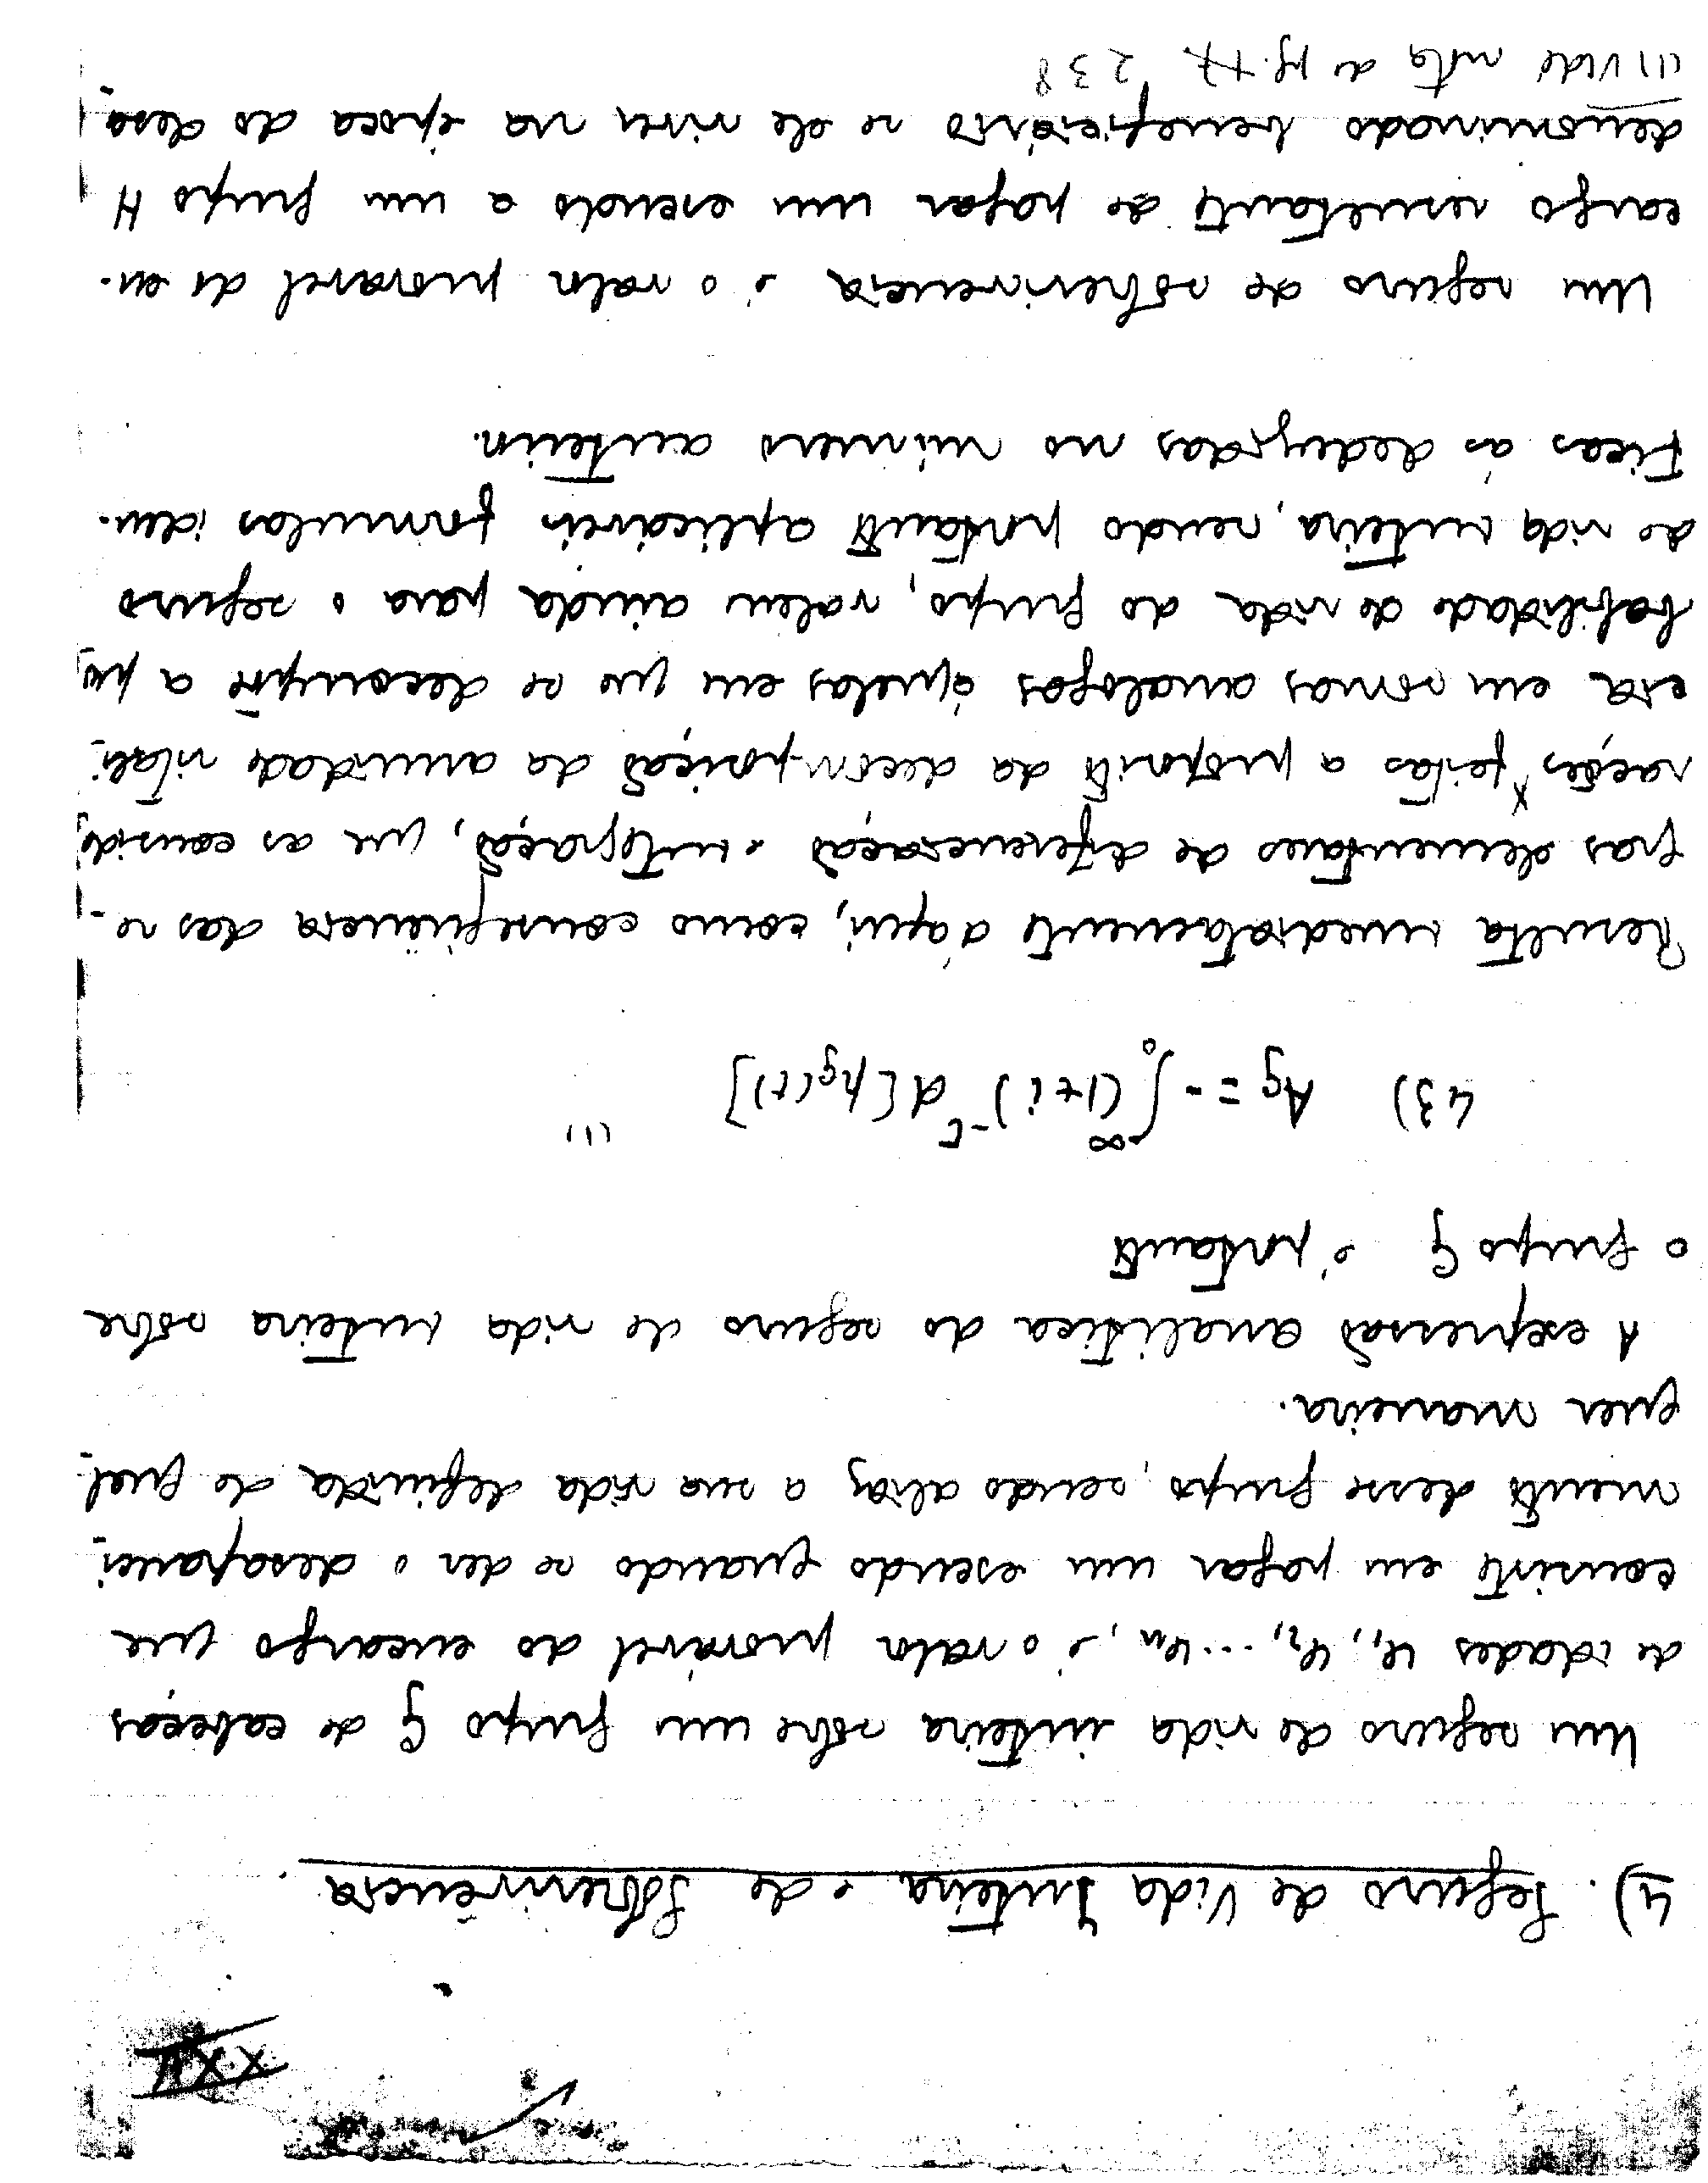 XXII
4). Seguro de Vida Inteira e de Sôbrevivência.
Um seguro de vida inteira sôbre um grupo G de cabeças
de idades φ₁, φ₂, ... φₙ, é o valor provável do encargo que
consiste em pagar um escudo quando se der o desapareci-
mento desse grupo, sendo aliás a sua vida definida de qual-
quer maneira.
A expressão analítica do seguro de vida inteira sôbre
o grupo G é portanto
43) Ag = - ∫₀^∞ (1+i)^-t d[pg(t)] (1)
Resulta imediatamente d'aqui, como consequência das re-
gras elementares de diferenciação e integração, que as conside-
rações feitas a propósito da decomposição da anuidade vitalí-
cia em somas analogas áquelas em que se decompõe a pro-
babilidade de vida do grupo, valem ainda para o seguro
de vida inteira, sendo portanto aplicáveis formulas iden-
ticas ás deduzidas no número anterior.
Um seguro de sôbrevivencia é o valor provavel do en-
cargo resultante de pagar um escudo a um grupo H
denominado beneficiário se ele viver na época do desa-
(1) Vide nota de pg. 238